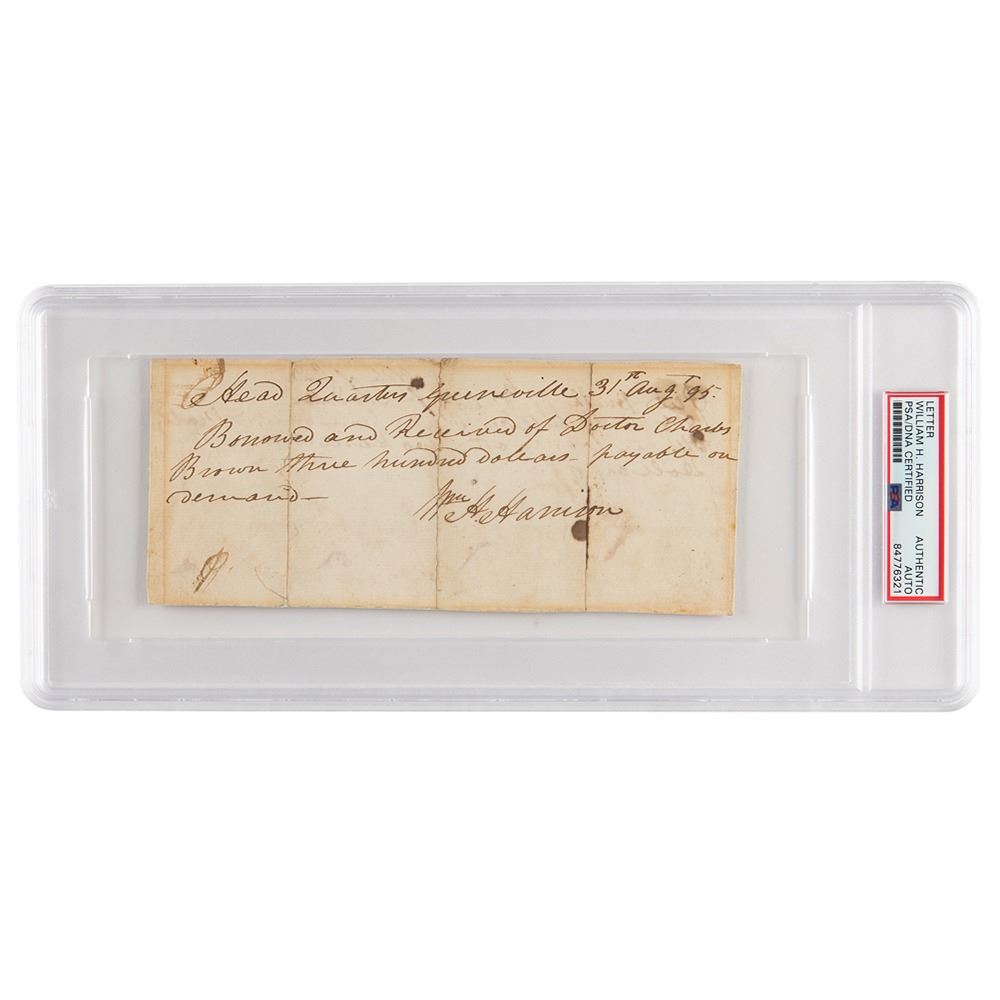 Head Quarters Greeneville 31st Augt 95.
Borrowed and Received of Doctor Charles
Brown three hundred dollars payable on
demand—
Wm H Harrison
LETTER
WILLIAM H. HARRISON AUTHENTIC
PSA/DNA CERTIFIED AUTO
PSA 84776321